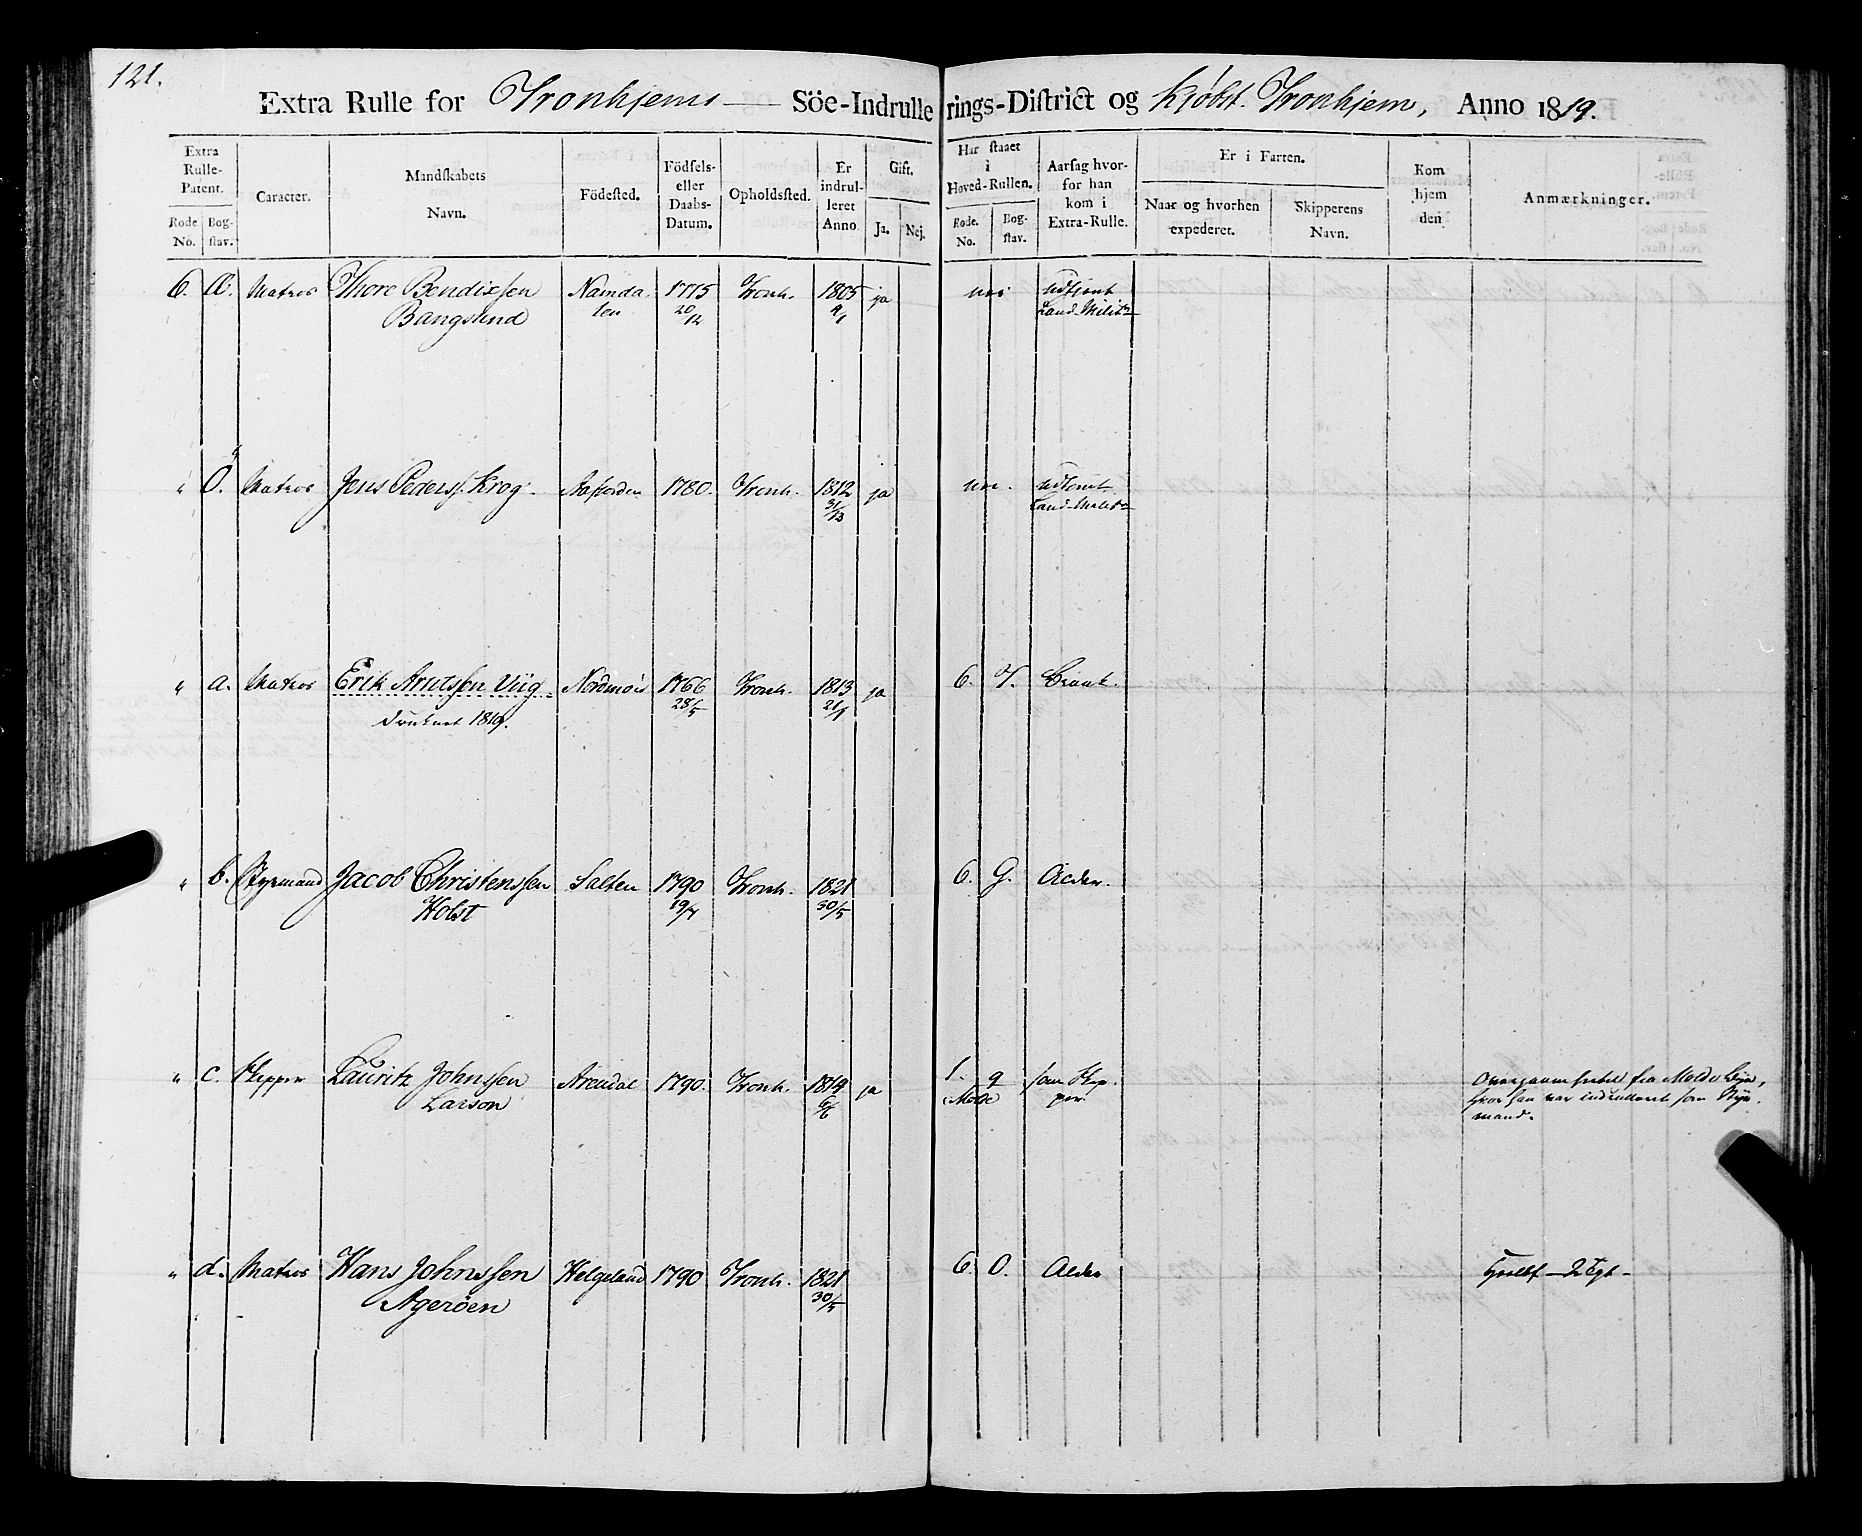 121.
Extra Rulle for Tronhjems Söe-Indrullerings-District og Kjøbst. Tronhjem, Anno 1819.
Extra Rulle-Patent. Caracter. Mandskabets Navn. Födested. Födsels- eller Daabs-Datum. Opholdsted. Er indrulleret Anno Gift. Har staaet i Hoved-Rullen. Aarsag hvorfor han kom i Extra-Rulle. Er i Farten. Kom hjem den Anmærkninger.
Rode No. Bogstav. Ja. Nej. Rode. No. Bogstav. Naar og hvorhen expederet. Skipperens Navn.
6. Æ. Matros Thore Bendixsen Namda 1775 Tronh. 1805 ja nei udtjent
Bangslund len 20/12 9/1 Land-Milit
" Ö. Matros Jens Peders. Krog. Aafjorden 1780. Tronh. 1812 ja nei.
31/13 Land-Milit
" a. Matros Erik Arntssen Viig Nordmör 1766 Tronh. 1813 ja 6. T.
druknet 1819. 28/5 21/1
" b. Styrmand Jacob Christenssen Salten 1790 Tronh. 1821 6. G. Alder.
Holst 19/4 30/5
" c. Skipper Lauritz Johnssen Arendal 1790. Tronh. 1819 ja 1. q som Skip
Larson 6/6 Molde per.
fra Molde Bye,
hvor han var indrulleret som Styr
mand.
" d. Matros Hans Johnssen Helgeland 1790 Tronh. 1821 6. O. Alder
Ageröen 30/5